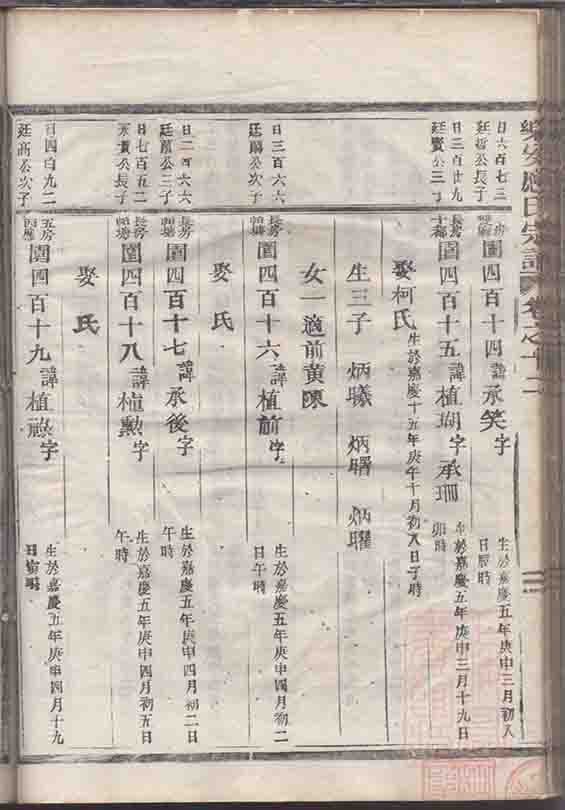 樂安應氏宗譜 卷之十二
日六百七三
廷哲公長子
圍四百十四 諱承笑 字
生於嘉慶五年庚申三月初八
日辰時
日三百廿九
廷實公三子
長房
十都
圍四百十五 諱植瑚 字承珊
生於嘉慶五年庚申三月十九日
卯時
娶柯氏 生於嘉慶十五年庚午十月初八日子時
生三子 炳曦 炳曙 炳曜
女一適前黃陳
日三百六六
廷 公次子
長房
塘
圍四百十六 諱植前 字
生於嘉慶五年庚申四月初二
日午時
娶氏
日二百六六
廷 公三子
長房
塘
圍四百十七 諱承後 字
生於嘉慶五年庚申四月初二日
午時
日七百五二
公長子
長房
塘
圍四百十八 諱植勲 字
生於嘉慶五年庚申四月初五日
午時
娶氏
日四百九二
廷高公次子
五房
四應
圍四百十九 諱植祿 字
生於嘉慶五年庚申四月十九
日寅時